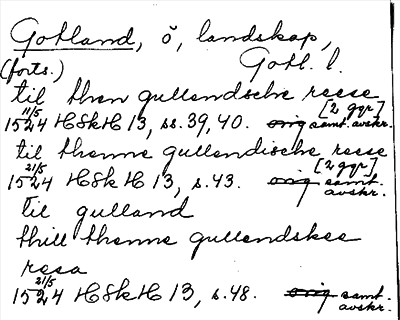 Gotland, ö, landskap,
(forts.) Gotl. l.
til then gullendsche reese
[2 ggr]
11/5
1524 HSkH 13, ss. 39, 40. orig samt. avskr.
til thenne gullendische reese
[2 ggr]
21/5
1524 HSkH 13, s. 43. orig samt. avskr.
til gulland
thill thenne gullendskee
resa
21/5
1524 HSkH 13, s. 48. orig samt. avskr.